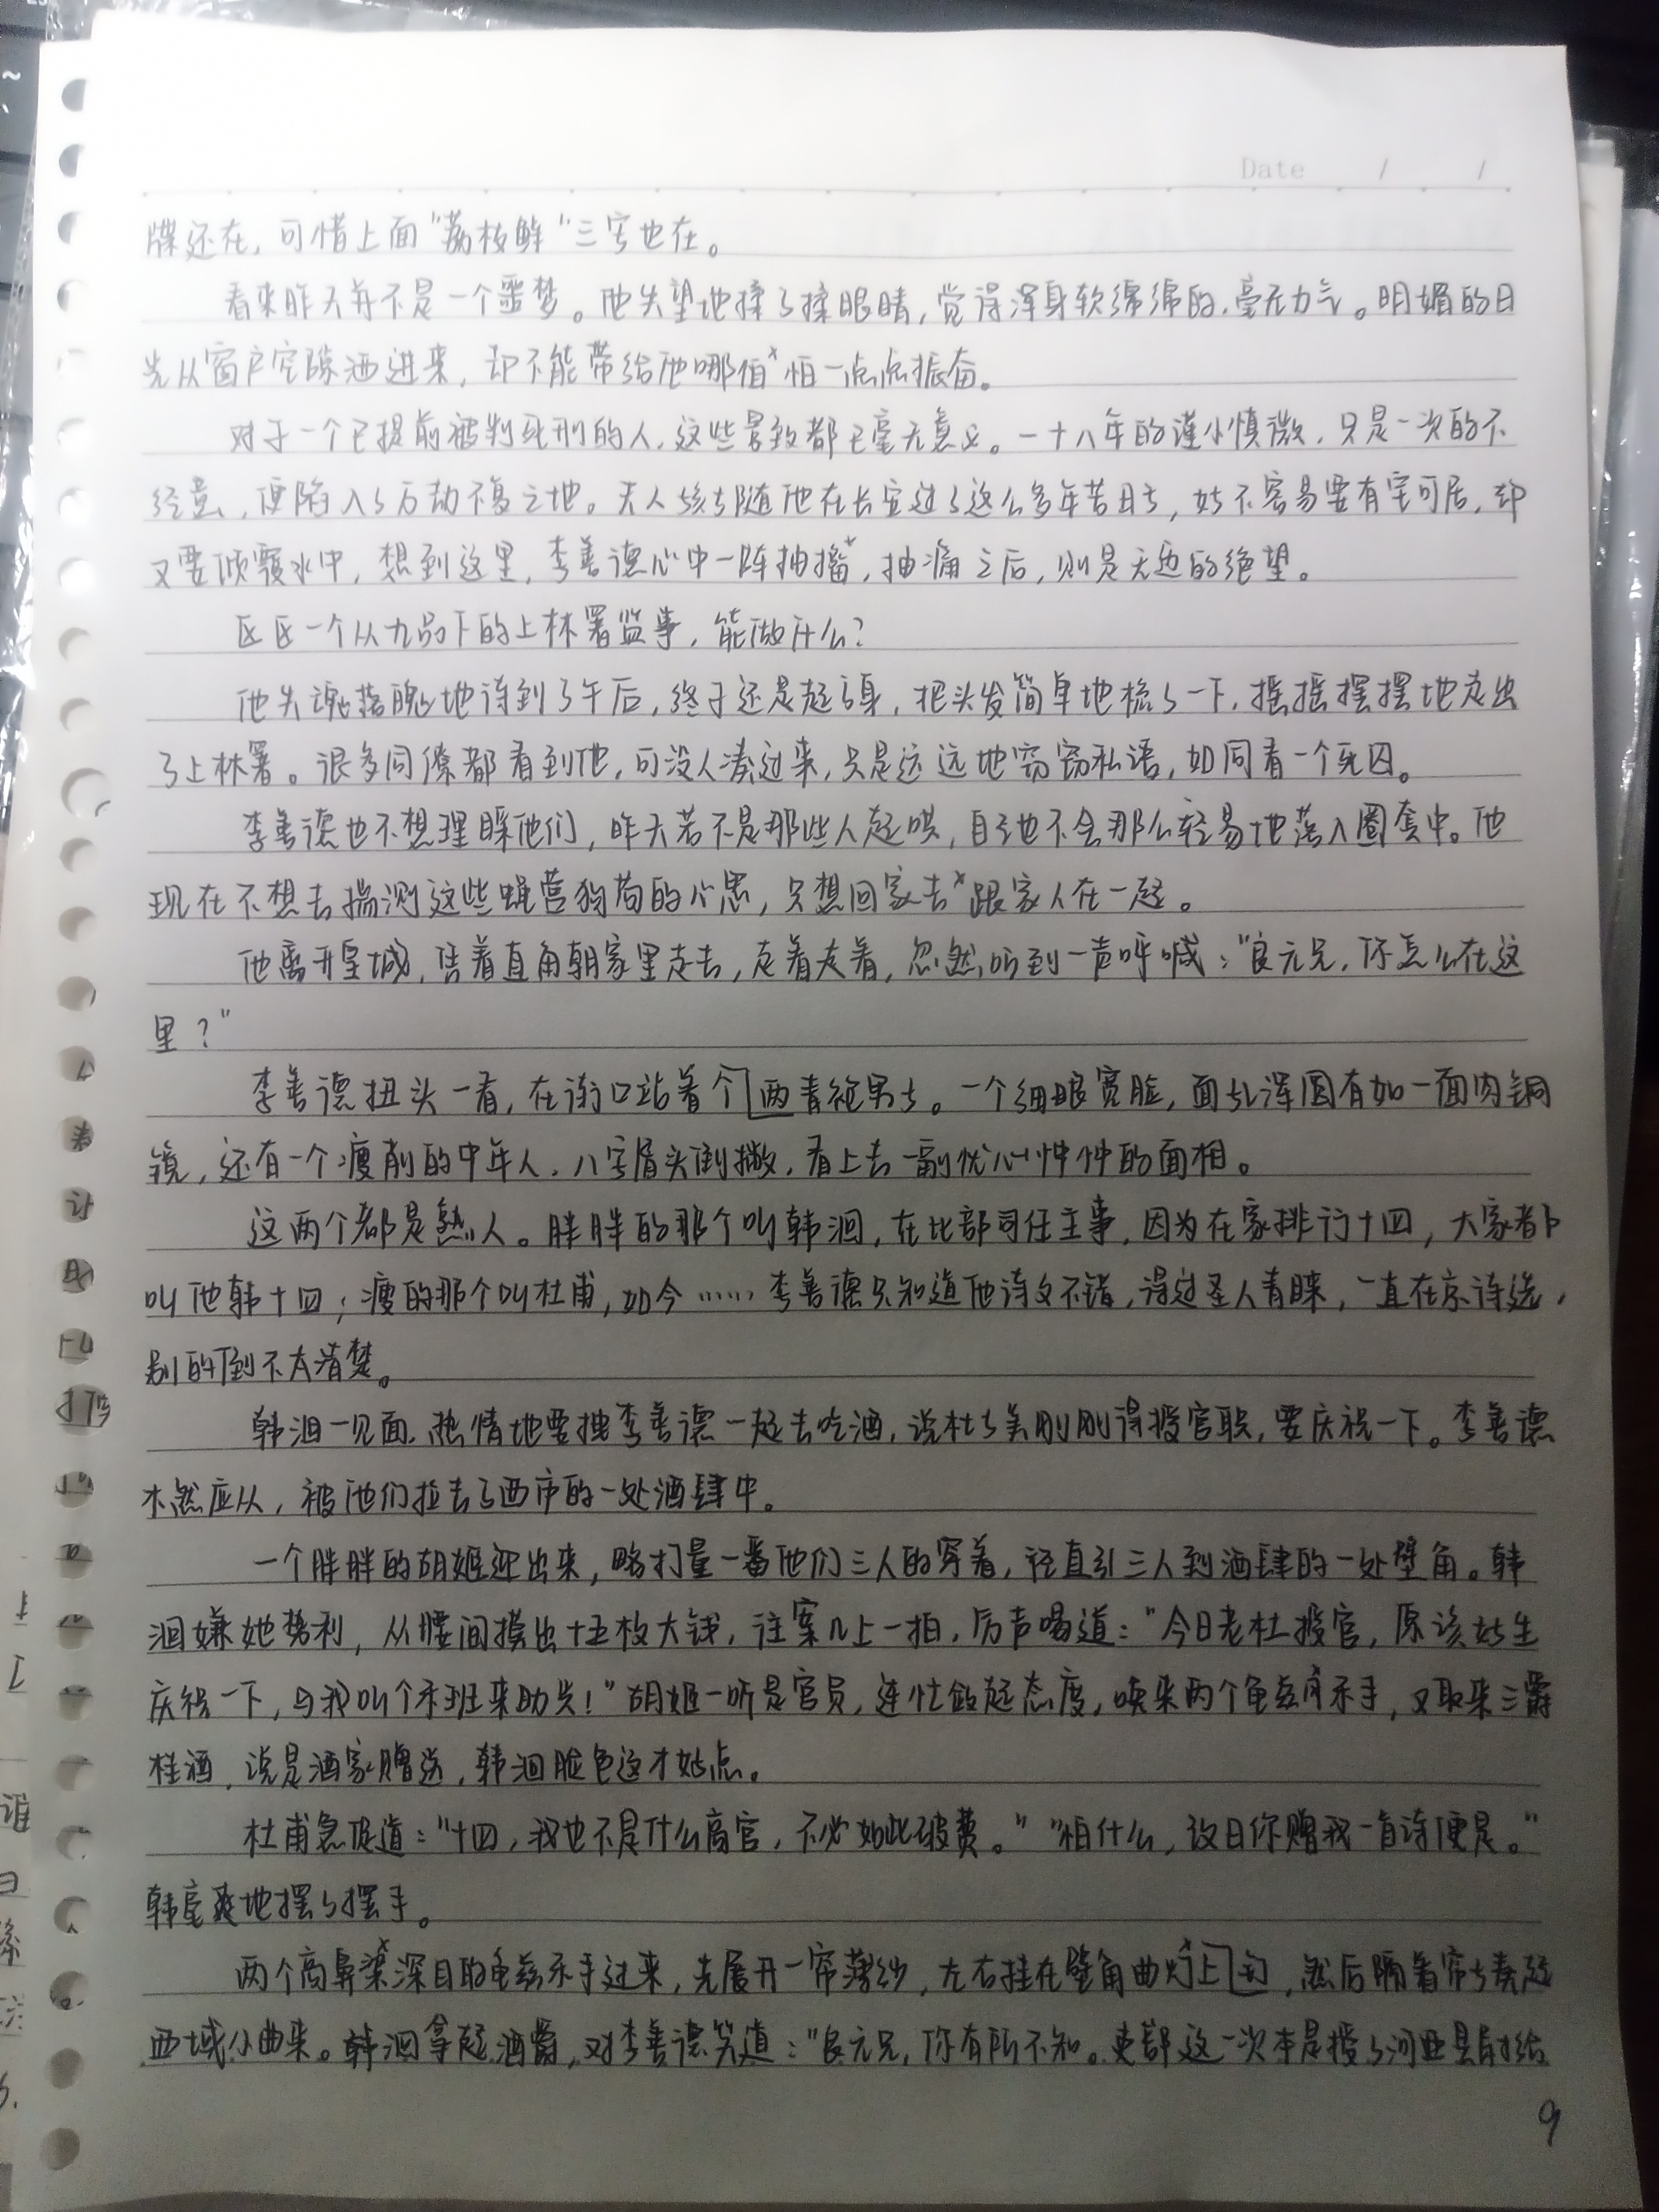 Date / /
牒还在，可惜上面“荔枝鲜”三字也在。
看来昨天并不是一个噩梦。他失望地揉了揉眼睛，觉得浑身软绵绵的，毫无力气。明媚的日
光从窗户空隙洒进来，却不能带给他哪怕一点点振奋。
对于一个已提前被判死刑的人，这些景致都已毫无意义。一十八年的谨小慎微，只是一次的不
经意，便陷入了万劫不复之地。夫人孩子随他在长安过了这么多年苦日子，好不容易要有宅可居，却
又要倾覆水中，想到这里，李善德心中一阵抽搐，抽痛之后，则是无边的绝望。
区区一个从九品下的上林署监事，能做什么？
他失魂落魄地待到了午后，终于还是起了身，把头发简单地梳了一下，摇摇摆摆地走出
了上林署。很多同僚都看到他，可没人凑过来，只是远远地窃窃私语，如同看一个死囚。
李善德也不想理睬他们，昨天若不是那些人起哄，自己也不会那么轻易地落入圈套中。他
现在不想去揣测这些蝇营狗苟的心思，只想回家去跟家人在一起。
他离开皇城，凭着直角朝家里走去，走着走着，忽然听到一声呼喊：“良元兄，你怎么在这
里？”
李善德扭头一看，在街口站着个两青袍男子。一个细眼宽脸，面孔浑圆有如一面肉铜
镜，还有一个瘦削的中年人，八字眉头倒撇，看上去一副忧心忡忡的面相。
这两个都是熟人。胖胖的那个叫韩洄，在比部司任主事，因为在家排行十四，大家都
叫他韩十四；瘦的那个叫杜甫，如今……李善德只知道他诗文不错，得过圣人青睐，一直在京待选，
别的倒不太清楚。
韩洄一见面，热情地要拽李善德一起去吃酒，说杜子美刚刚得授官职，要庆祝一下。李善德
木然应从，被他们拉去了西市的一处酒肆中。
一个胖胖的胡姬迎出来，略打量一番他们三人的穿着，径直引三人到酒肆的一处壁角。韩
洄嫌她势利，从腰间摸出十五枚大钱，往案几上一拍，厉声喝道：“今日老杜授官，原该好生
庆祝一下，与我叫个乐班来助兴！”胡姬一听是官员，连忙敛起态度，唤来两个龟兹乐手，又取来三爵
桂酒，说是酒家赠送，韩洄脸色这才好点。
杜甫急促道：“十四，我也不是什么高官，不必如此破费。”“怕什么，改日你赠我一首诗便是。”
韩豪爽地摆了摆手。
两个高鼻深目的龟兹乐手过来，先展开一帘薄纱，左右挂在壁角曲灯上，然后隔着帘子奏起
西域小曲来。韩洄拿起酒爵，对李善德笑道：“良元兄，你有所不知。吏部这一次本是授了河西县尉给
9